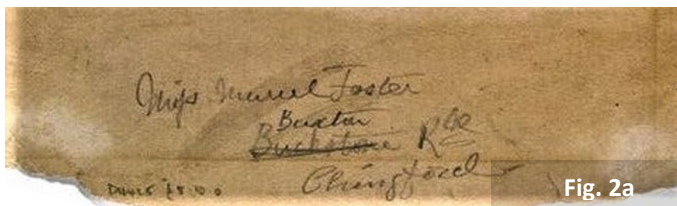 Miss Muriel Foster
Buxton
Buckstone Rd
Chingford
£5.10.0
Fig. 2a